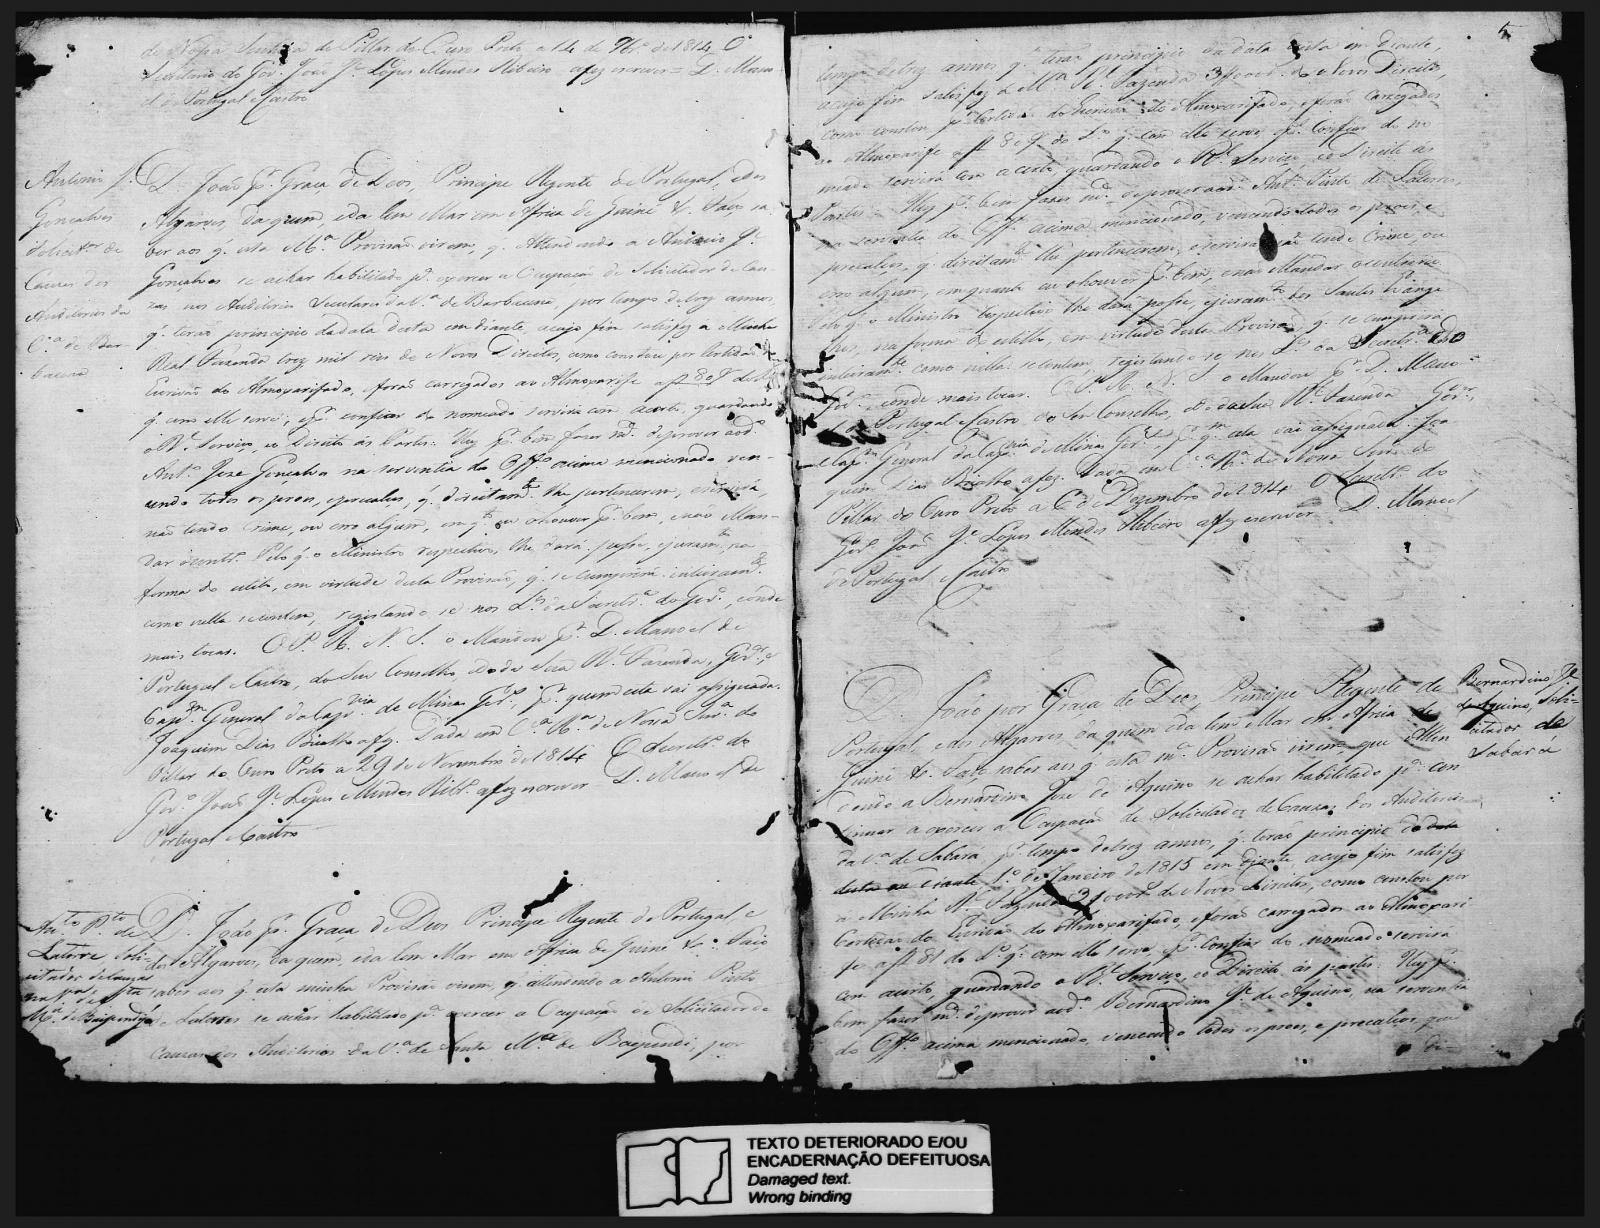 de Nossa Senhora do Pillar do Ouro Preto a 14 de 9br.º de 1814 O
Secretario do Gov.º João J.e Lopes Mendes Ribeiro a fez escrever = D. Mano
el de Portugal e Castro
Antonio J.e
Goncalves
Solicit.or de
Cauzas dos
Auditorios da
V.a de Bar
bacena
D. João p.r Graça de Deos, Principe Regente de Portugal, e dos
Algarves, daquem, e da lem Mar em Africa de Guiné &.ª Faço sa
ber aos q' esta M.ª Provisão virem, q' Attendendo a Antonio J.e
Gonçalves se achar habilitado p.ª exercer a Ocupação de Solicitador de Cau
zas nos Auditorios Seculares da V.ª de Barbacena, por tempo de trez annos,
q' terão principio da data desta em diante, a cujo fim satisfez a Minha
Real Fazenda trez mil reis de Novos Direitos, como constou por Certidão do
Escrivão do Almoxarifado, e forão carregados ao Almoxarife a f 80 v do L.º
q' com elle serve; e p.r confiar do nomeado servirá com acerto, guardando
o R.l Serviço, e o Direito ás Partes: Hey p.r bem fazer m.ce de prover ao d.º
Ant.º Joze Gonçalves na serventia do Off.º acima mencionado ven-
cendo todos os proes, e precalços, q' direitam.te lhe pertencerem, e servirá,
não tendo Crime, ou erro algum, em q.to eu o houver p.r bem, e não Man-
dar o contr.º Pelo q' o Ministro respectivo, lhe dará posse, e juram.to na
forma do estilo, em virtude desta Provisão, q' se cumprirá inteiram.te
como nella se contem, registando-se nos L.os da Secret.ª do Gov.º, e onde
mais tocar. O P. R. N. S. o Mandou p.r D. Manoel de
Portugal e Castro, do Seu Conselho, e do da Sua R.l Fazenda, Gov.or, e
Cap.m General da Cap.nia de Minas Ger.s, p.r quem esta vai assignada.
Joaquim Dias Bicalho a fez. Dada em V.ª R.ª de Nossa Snr.ª do
Pillar do Ouro Preto a 29 de Novembro de 1814 O Secret.º do
Gov.º João J.e Lopes Mendes Rib.º a fez escrever D. Manoel de
Portugal e Castro
Ant.º P.to de
Laterre Soli-
citador de Cauzas
M.ª de Baependy
D. João p.r Graça de Deos Principe Regente de Portugal, e
dos Algarves, daquem, e da lem Mar em Africa de Guiné &.ª Faço
saber aos q' esta minha Provisão virem, q' attendendo a Antonio Pinto
de Laterres se achar habilitado p.ª exercer a Ocupação de Solicitador de
Cauzas nos Auditorios da V.ª de Santa M.ª de Baependi, por
5
tempo de trez annos q' terão principio da data desta em diante,
a cujo fim satisfez a M.ª R.l Fazenda 3$000 r.s de Novos Direitos,
como constou p.r Certidão do Escrivão do Almoxarifado, e forão carregados
ao Almoxarife a f 80 v do L.º q' com elle serve, e p.r Confiar do no
meado servirá com acerto, guardando o R.l Serviço, e o Direito ás
Partes: Hey p.r bem fazer m.ce de prover ao d.º Ant.º Pinto de Laterres,
na serventia do Off.º acima mencionado, vencendo todos os proes, e
precalços, q' direitam.te lhe pertencerem, e servirá não tendo Crime, ou
erro algum, em quanto eu o houver p.r bem, e não Mandar o contrario
Pelo q' o Ministro respectivo lhe dará posse, e juram.to dos Santos Evange
lhos, na forma do estillo, em virtude desta Provisão, q' se cumprirá
inteiram.te como nella se contem, registando-se nos L.os da Secret.ª do
Gov.º e onde mais tocar. O P. R. N. S. o Mandou p.r D. Mano
el de Portugal e Castro do Seu Conselho, e do da Sua R.l Fazenda Gov.or,
e Cap.m General da Cap.nia de Minas Ger.s p.r q.m esta vai assignada. Joa
quim Dias Bicalho a fez. Dada em V.ª R.ª de Nossa Snr.ª do
Pillar do Ouro Preto a 6 de Dezembro de 1814 O Secret.º do
Gov.º João J.e Lopes Mendes Ribeiro a fez escrever D. Manoel
de Portugal e Castro
Bernardino J.e
de Aquino, Soli-
citador de
Sabará
D. João por Graça de Deos, Principe Regente de
Portugal, e dos Algarves daquem e da lem Mar em Africa de
Guiné &.ª Faço saber aos q' esta m.ª Provisão virem, que atten
dendo a Bernardino Joze de Aquino se achar habilitado p.ª con
tinuar a exercer a Ocupação de Solicitador de Cauzas dos Auditorios
da V.ª de Sabará, p.r tempo de trez annos, q' terão principio da data
desta em diante 1.º de Janeiro de 1815 em diante, a cujo fim satisfez
a Minha R.l Fazenda 3$000 r.s de Novos Direitos, como constou por
Certidão do Escrivão do Almoxarifado, e forão carregados ao Almoxari
fe a f 81 do L.º q' com elle serve, e p.r Confiar do nomeado servirá
com acerto, guardando o R.l Serviço, e o Direito ás partes: Hey p.r
bem fazer m.ce de prover ao d.º Bernardino J.e de Aquino, na serventia
do Off.º acima mencionado, vencendo todos os proes, e precalços, que
di-
TEXTO DETERIORADO E/OU
ENCADERNAÇÃO DEFEITUOSA
Damaged text.
Wrong binding